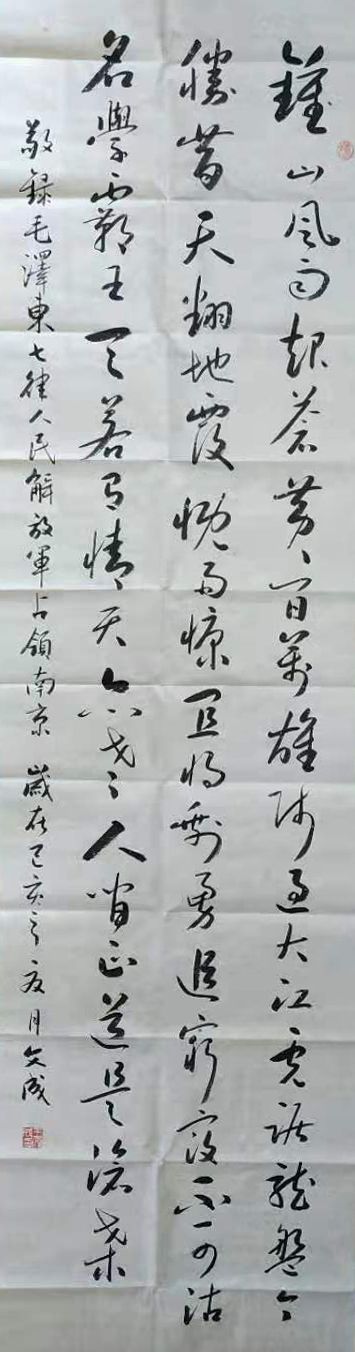 鍾山風雨起蒼黃百萬雄師過大江虎踞龍盤今
勝昔天翻地覆慨而慷宜將剩勇追窮寇不可沽
名學霸王天若有情天亦老人間正道是滄桑
敬録毛澤東七律人民解放軍占領南京 歲在己亥之夏月文成